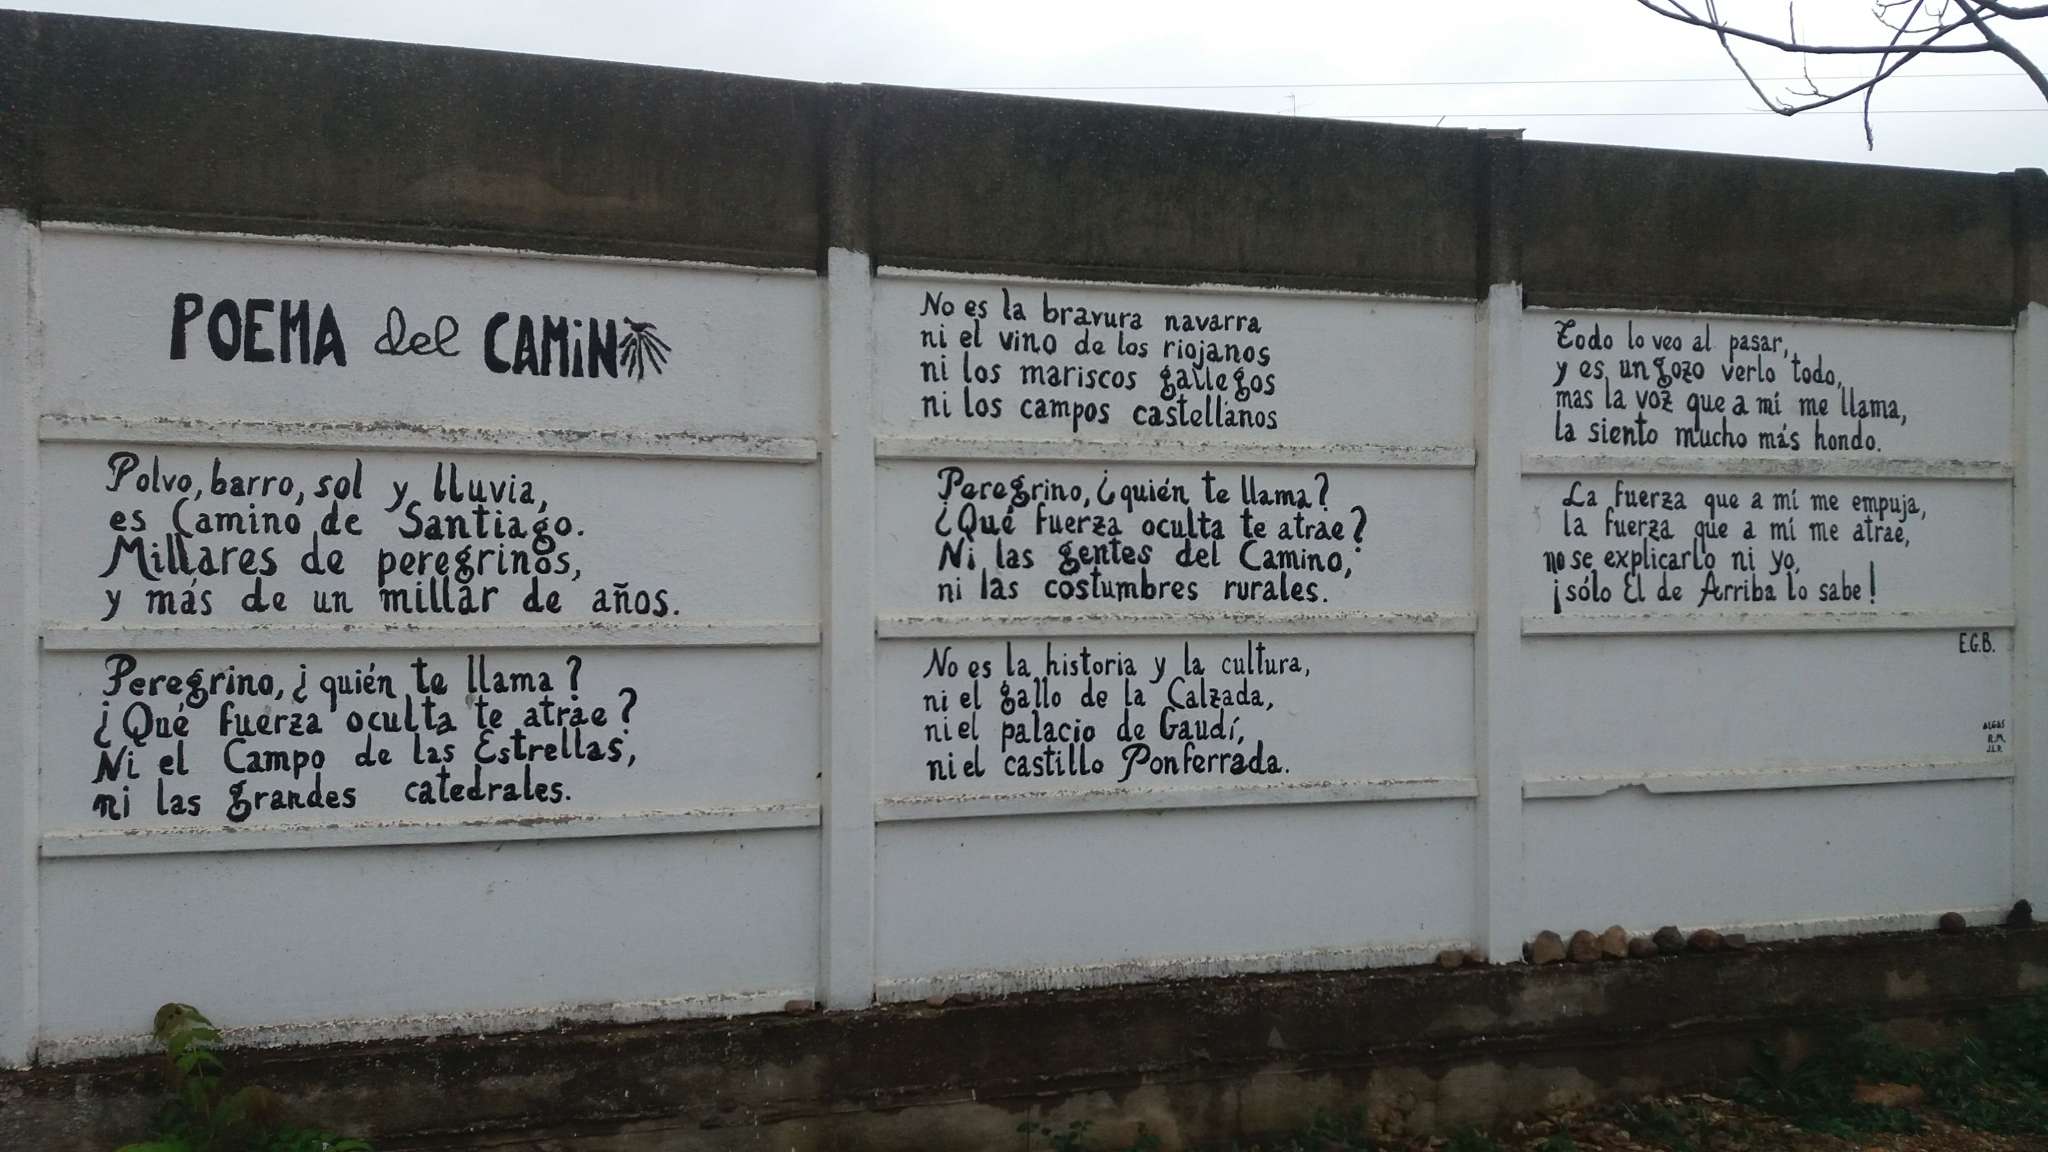 POEMA del CAMIN
Polvo, barro, sol y lluvia,
es Camino de Santiago.
Millares de peregrinos,
y más de un millar de años.
Peregrino, ¿quién te llama?
¿Qué fuerza oculta te atrae?
Ni el Campo de las Estrellas,
ni las grandes catedrales.
No es la bravura navarra
ni el vino de los riojanos
ni los mariscos gallegos
ni los campos castellanos
Peregrino, ¿quién te llama?
¿Qué fuerza oculta te atrae?
Ni las gentes del Camino,
ni las costumbres rurales.
No es la historia y la cultura,
ni el gallo de la Calzada,
ni el palacio de Gaudí,
ni el castillo Ponferrada.
Todo lo veo al pasar,
y es un gozo verlo todo,
mas la voz que a mí me llama,
la siento mucho más hondo.
La fuerza que a mí me empuja,
la fuerza que a mí me atrae,
no se explicarlo ni yo,
¡sólo El de Arriba lo sabe!
E.G.B.
ALGAS
R.M.